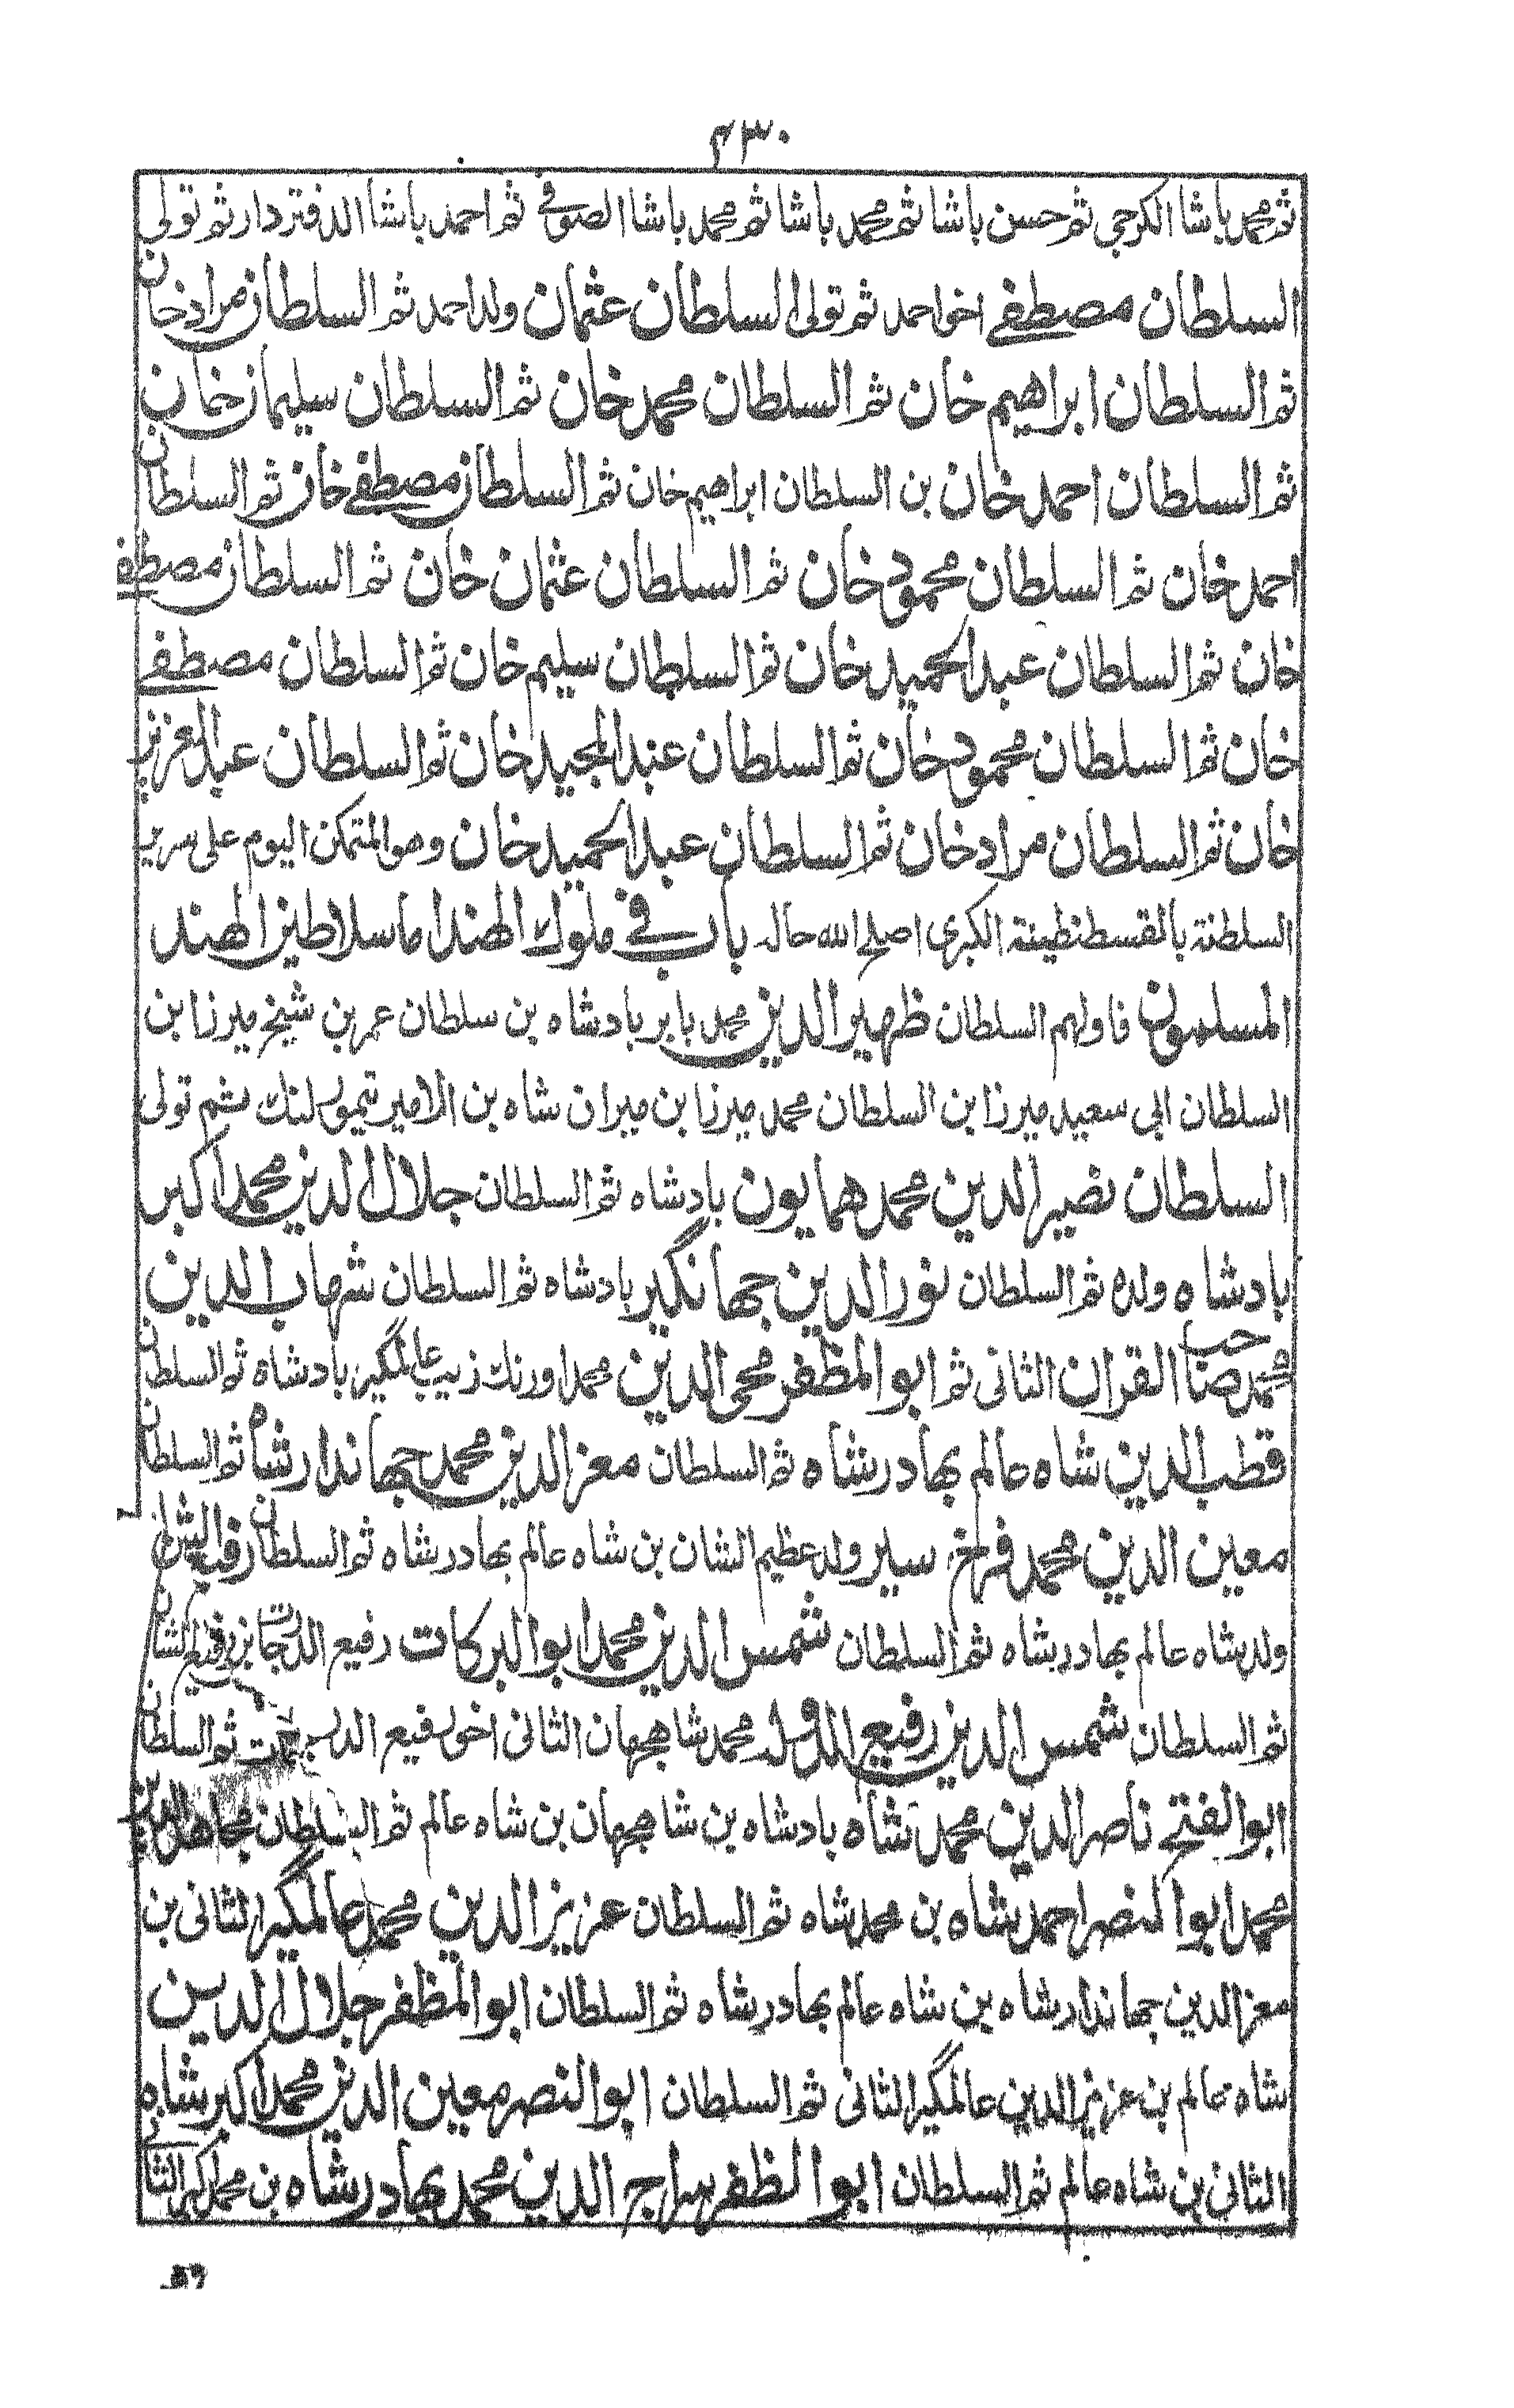 ٤٣٠
ثم محمد باشا الكرجي ثم حسن باشا ثم محمد باشا ثم محمد باشا الصوفي ثم احمد باشا الدفتردار ثم تولى
السلطان مصطفى اخو احمد ثم تولى السلطان عثمان ولد احمد ثم السلطان مراد خان
ثم السلطان ابراهيم خان ثم السلطان محمد خان ثم السلطان سليمان خان
ثم السلطان احمد خان بن السلطان ابراهيم خان ثم السلطان مصطفى خان ثم السلطان
احمد خان ثم السلطان محمود خان ثم السلطان عثمان خان ثم السلطان مصطفى
خان ثم السلطان عبد الحميد خان ثم السلطان سليم خان ثم السلطان مصطفى
خان ثم السلطان محمود خان ثم السلطان عبد المجيد خان ثم السلطان عبد العزيز
خان ثم السلطان مراد خان ثم السلطان عبد الحميد خان وهو المتمكن اليوم على سرير
السلطنة بالقسطنطينة الكبرى اصلح الله حاله باب في ملوك الهند اما سلاطين الهند
المسلمون فاولهم السلطان ظهير الدين محمد بابر بادشاه بن سلطان عمر بن شيخ ميرزا بن
السلطان ابي سعيد ميرزا بن السلطان محمد ميرزا بن ميران شاه بن الامير تيمور لنك ثم تولى
السلطان نصير الدين محمد همايون بادشاه ثم السلطان جلال الدين محمد اكبر
بادشاه ولده ثم السلطان نور الدين جهانگير بادشاه ثم السلطان شهاب الدين
محمد صاحب القران الثاني ثم ابو المظفر محى الدين محمد اورنك زيب عالمگير بادشاه ثم السلطان
قطب الدين شاه عالم بهادر شاه ثم السلطان معز الدين محمد جهاندار شاه ثم السلطان
معين الدين محمد فرخ سير ولد عظيم الشان بن شاه عالم بهادر شاه ثم السلطان رفيع الشان
ولد شاه عالم بهادر شاه ثم السلطان شمس الدين محمد ابو البركات رفيع الدرجات بن رفيع الشان
ثم السلطان شمس الدين رفيع الدوله محمد شاهجهان الثاني اخو رفيع الدرجات ثم السلطان
ابو الفتح ناصر الدين محمد شاه بادشاه بن شاهجهان بن شاه عالم ثم السلطان مجاهد الدين
محمد ابو النصر احمد شاه بن محمد شاه ثم السلطان عزيز الدين محمد عالمگير الثاني بن
معز الدين جهاندار شاه بن شاه عالم بهادر شاه ثم السلطان ابو المظفر جلال الدين
شاه عالم بن عزيز الدين عالمگير الثاني ثم السلطان ابو النصر معين الدين محمد اكبر شاه
الثاني بن شاه عالم ثم السلطان ابو الظفر سراج الدين محمد بهادر شاه بن محمد اكبر الثاني